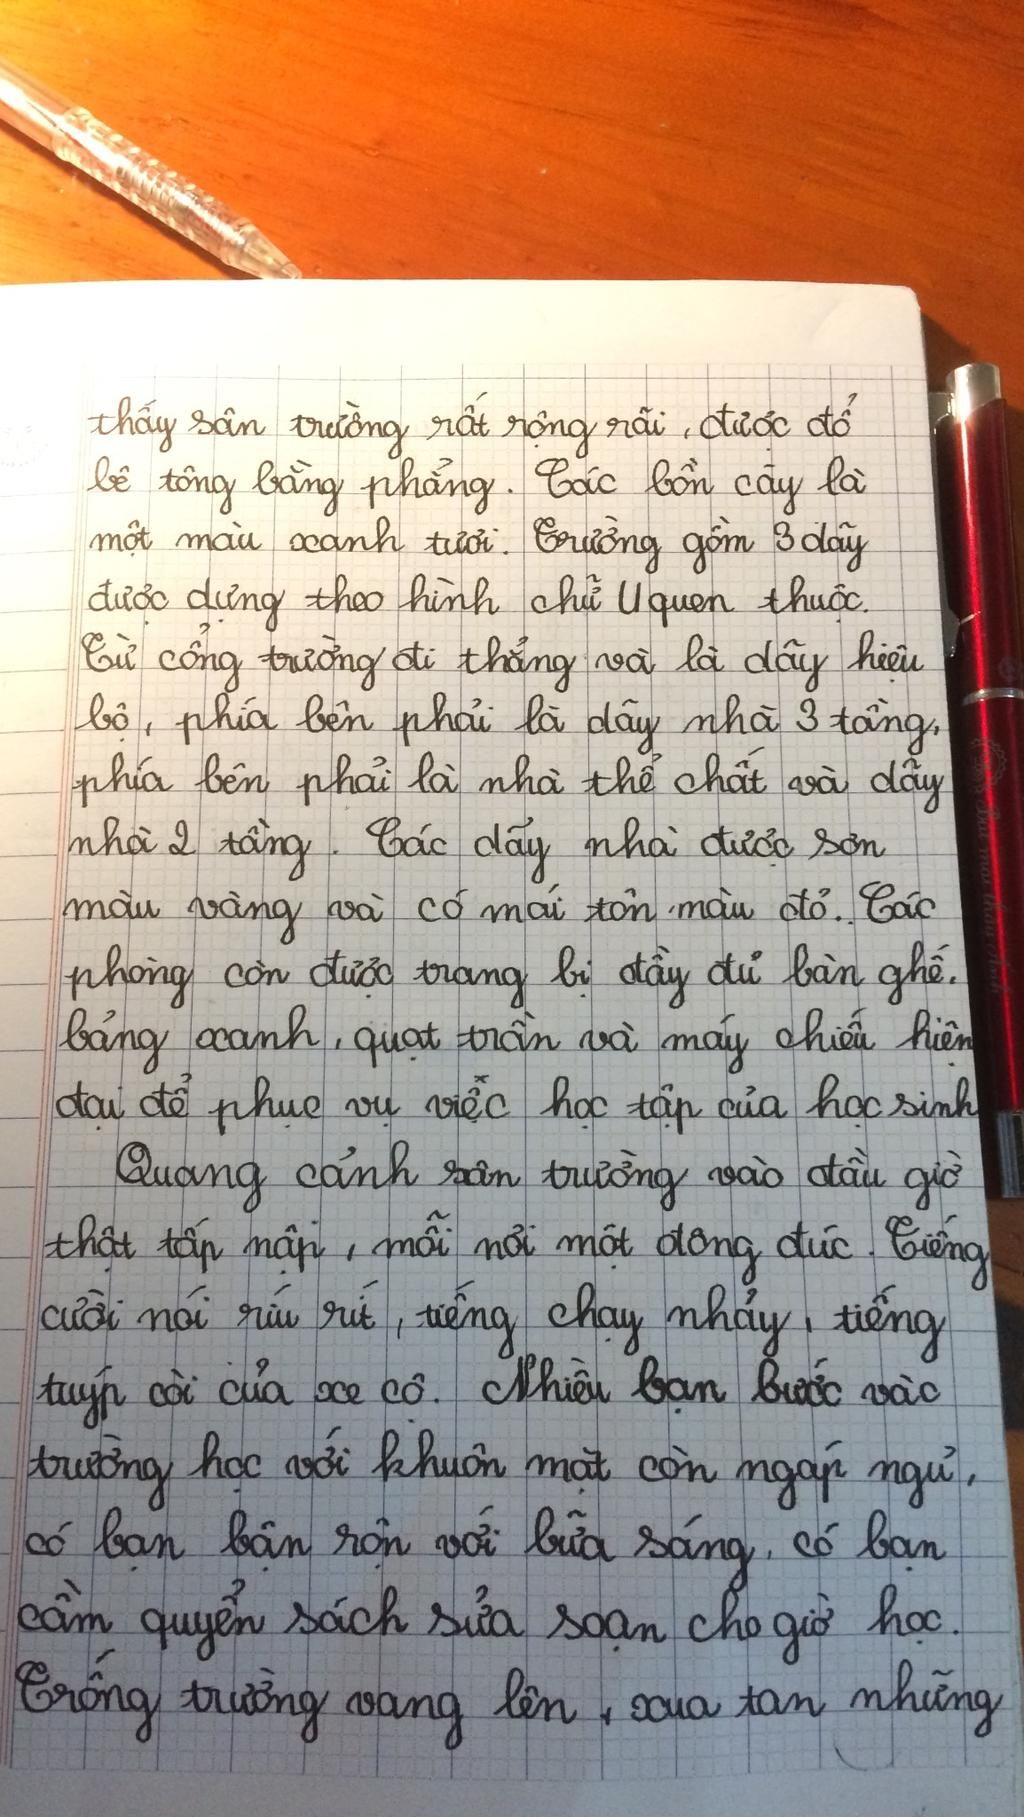 thấy sân trường rất rộng rãi, được đổ
bê tông bằng phẳng. Các bồn cây là
một màu xanh tươi. Trường gồm 3 dãy
được dựng theo hình chữ U quen thuộc.
Từ cổng trường đi thẳng và là dãy hiệu
bộ, phía bên phải là dãy nhà 3 tầng,
phía bên phải là nhà thể chất và dãy
nhà 2 tầng. Các dẫy nhà được sơn
màu vàng và có mái tôn màu đỏ. Các
phòng còn được trang bị đầy đủ bàn ghế.
bảng xanh, quạt trần và máy chiếu hiện
đại để phục vụ việc học tập của học sinh
Quang cảnh sân trường vào đầu giờ
thật tấp nập, mỗi nơi một đông đúc. Tiếng
cười nói ríu rít, tiếng chạy nhảy, tiếng
tuýp còi của xe cộ. Nhiều bạn bước vào
trường học với khuôn mặt còn ngáp ngủ,
có bạn bận rộn với bữa sáng, có bạn
cầm quyển sách sửa soạn cho giờ học.
Trống trường vang lên, xua tan những